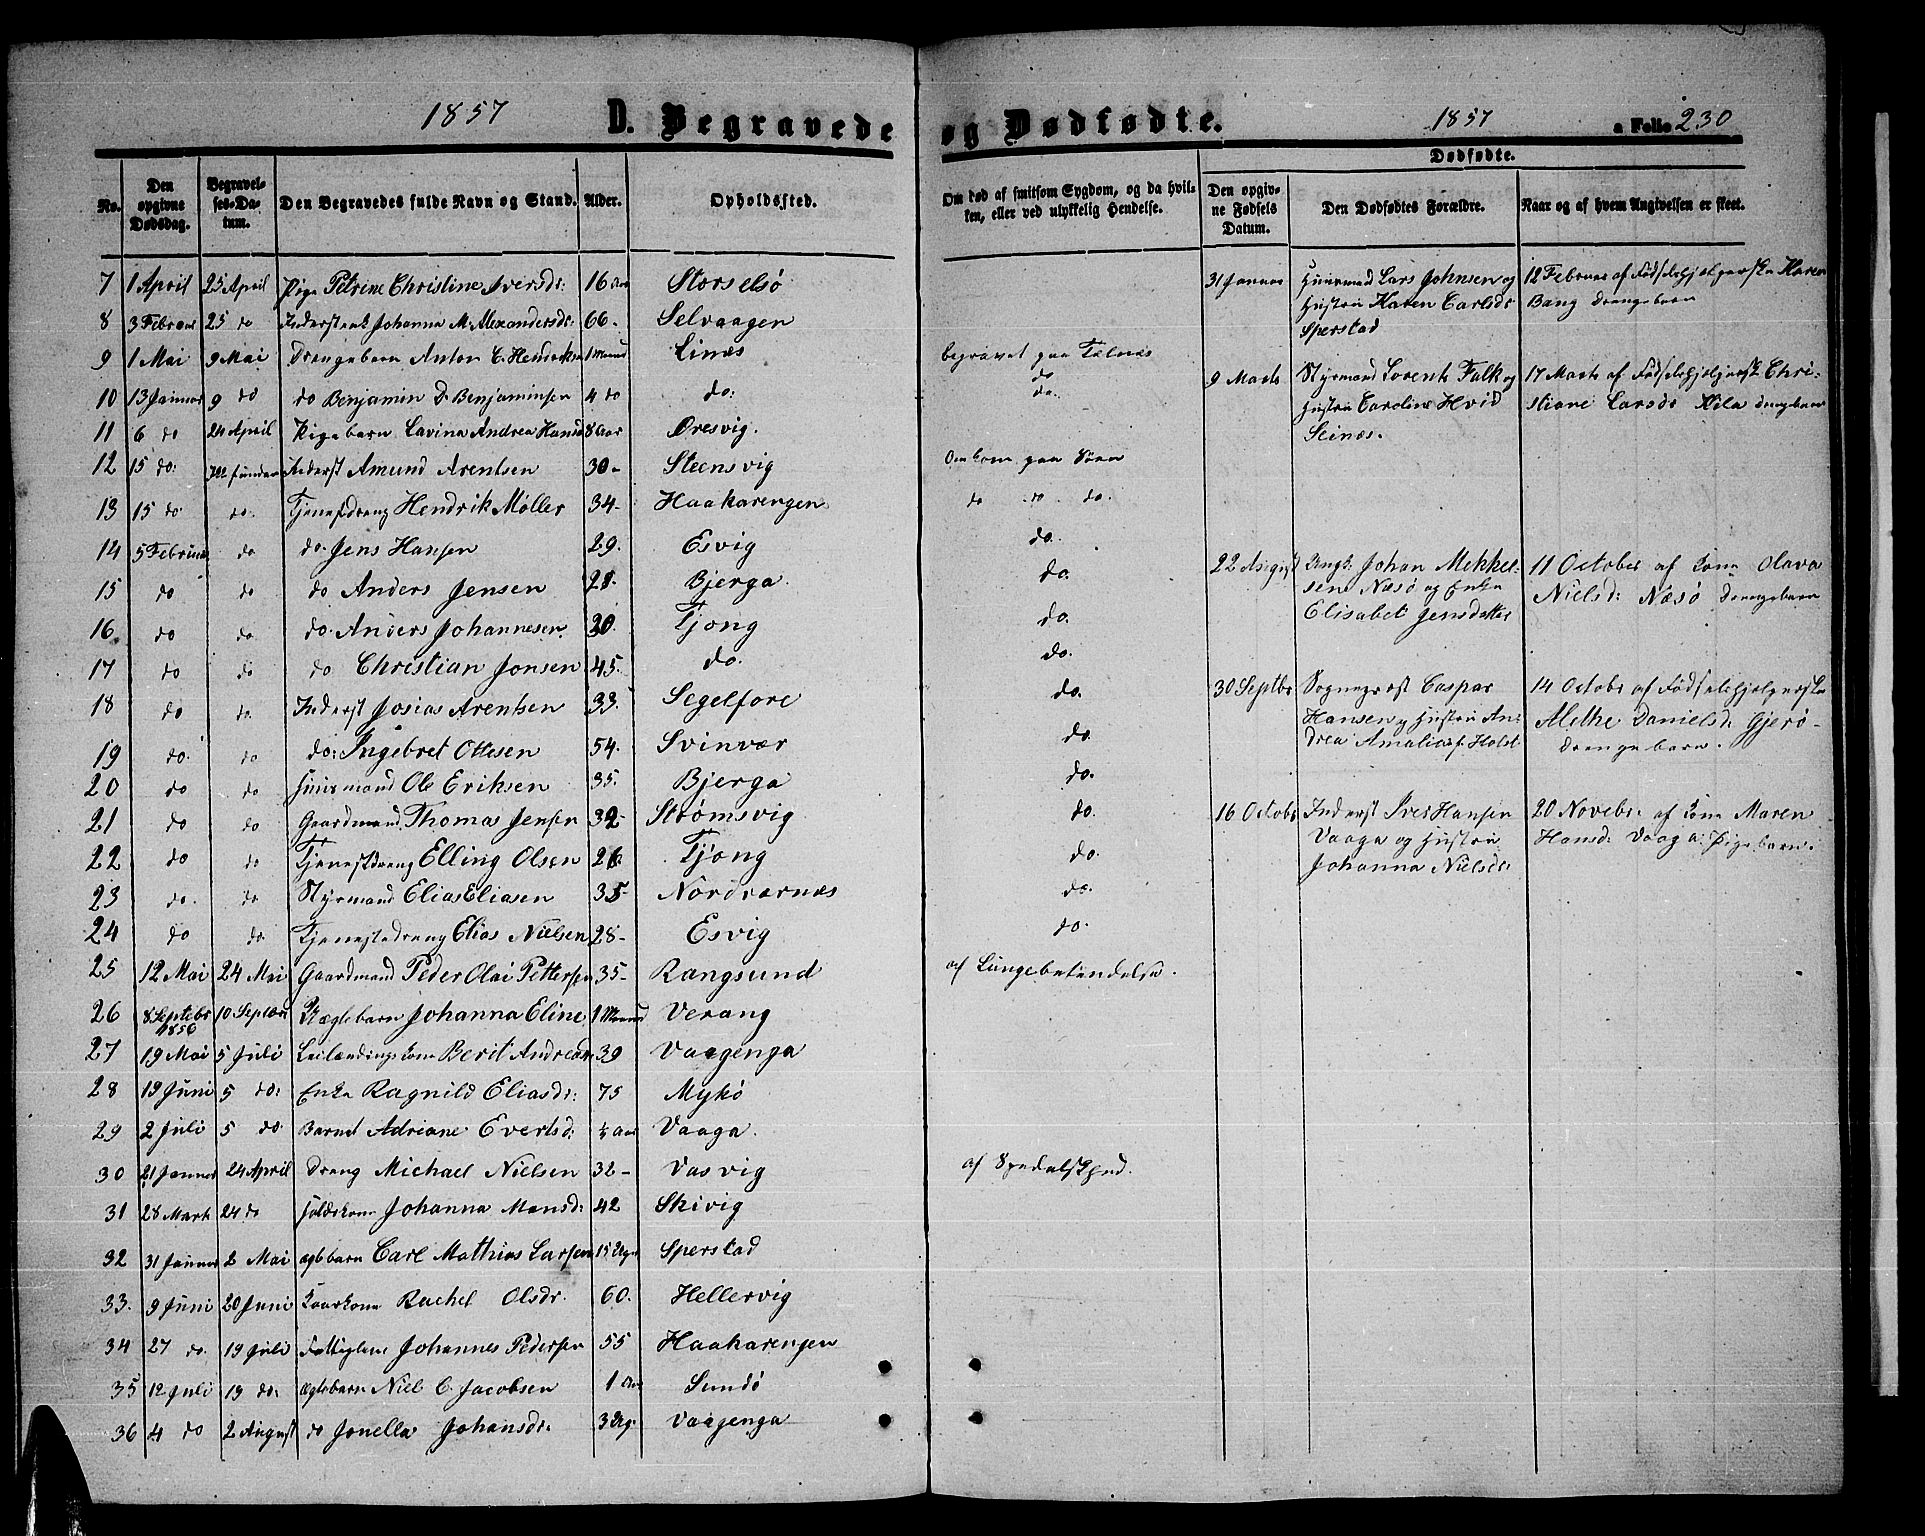 1857 D. Begravede
No. Den opgivne Dødsdag. Begravelses-Datum. Den Begravedes fulde Navn og Stand. Alder. Opholdssted.
7 1 April 25 April Pige Petrine Christine Iversdr: 16 Aar Storselsø
8 3 Februar 25 do Inderstenk Johanna M. Alexandersdr: 66- Selvaagen
9 1 Mai 9 Mai Drengebarn Anton C. Hendriksen 1 Maaned Linæs
10 13 Januar 9 do do Benjamin D. Benjaminsen 4 do do:
11 6 do 24 April Pigebarn Lavina Andrea Hansd 8 Aar Øresvig.
12 15 do: Ikke funden Inderst Amund Arentsen 30- Steensvig
13 15 do do. Tjenestdreng Hendrik Møller 34- Haakarengen
14 5 Februar do do. Jens Hansen 29. Esvig
15 do do do Anders Jensen 21- Bjerga.
16 do do do. Anders Johannesen 20. Tjong
17 do do do Christian Jonsen 45. do.
18 do do. Inderst Josias Arentsen 33. Segelfore
19 do. do do. Ingebret Ottesen 54. Svinvær
20 do do Huusmand Ole Eriksen 35. Bjerga
21 do do Gaardmand Thomas Jensen 32- Strømsvig
22 do do Tjenestdreng Elling Olsen 26 Tjong
23 do. do Styrmand Elias Eliasen 35- Nordværnæs
24 do do. Tjenestedreng Elias Nielsen 28- Esvig
25 12 Mai 24 Mai Gaardmand Peder Olai Pettersen 35- Rangsund
26 8 Septebr 1856 10 Septebr Uægtebarn Johanna Eline 1 Maaned Verang
27 19 Mai 5 Juli Leilændingskone Berit Andreasdr 39 Vaagenga
28 19 Juni 5 do: Enke Ragnild Eliasdr: 75 Mykø
29 2 Juli 5 do Barnet Adriane Evertsd: ½ Aar Vaaga.
30 21 Januar 24 April Dreng Michael Nielsen 32- Vasvig
31 28 Marts 24 do Johanna Monsd: 42 Skivig
32 31 Januar 2 Mai ægtebarn Carl Mathias Larsen 15 Uger Sperstad
33. 9 Juni 20 Juni Kaarkone Rachel Olsdr. 60. Hellervig
34 27 do. 19 Juli Fattiglem Johannes Pedersen 55 Haakarengen
35 12 Juli 19 do: ægtebarn Niel C. Jacobsen 1 Aar Sundø
36 4 do 2 August do Jonella Johansdr: 3 Ug. Vaagenga
og Dødfødte. 1857 a Folio 230
Om død af smitsom Sygdom, og da hvilken, eller ved ulykkelig Hendelse.
Dødfødte.
Den opgivne Fødsels Datum. Den Dødfødtes Forældre. Naar og af hvem Angivelsen er skeet.
begravet paa Telnæs
do
do.
Omkom paa Søen
do do do.
do.
do.
do.
do.
do.
do.
do.
do.
do.
do.
do.
af Lungebetændelse.
af Spedalskhed.
31 Januar Huusmand Lars Johnsen og 12 Februar af Fødselshjelperske Maren
Hustru Karen Carlsdr Bang Drengebarn
Sperstad
9 Marts Styrmand Lorents Falk og 17 Marts af Fødselshjelpersk Chri-
Hustru Caroline Hvid stiane Larsdr Kila Drengebarn
Seinæs.
22 August Ungk. Johan Mekkel- 11 October af Kone Olava
sen Næsø og Enke Nielsd: Næsø Drengebarn
Elisabet Jensdatter
30 Septbr Sogneprest Caspar 14 Octobr af Fødselshjelperske
Hansen og Hustru An- Alethe Danielsd: Gjerø-
drea Amalia f. Holst Drengebarn.
16 Octobr Inderst Iver Hansen 20 Novebr. af Kone Maren
Vaaga og Hustru Hansd: Vaaga: Pigebarn.
Johanna Nielsdr